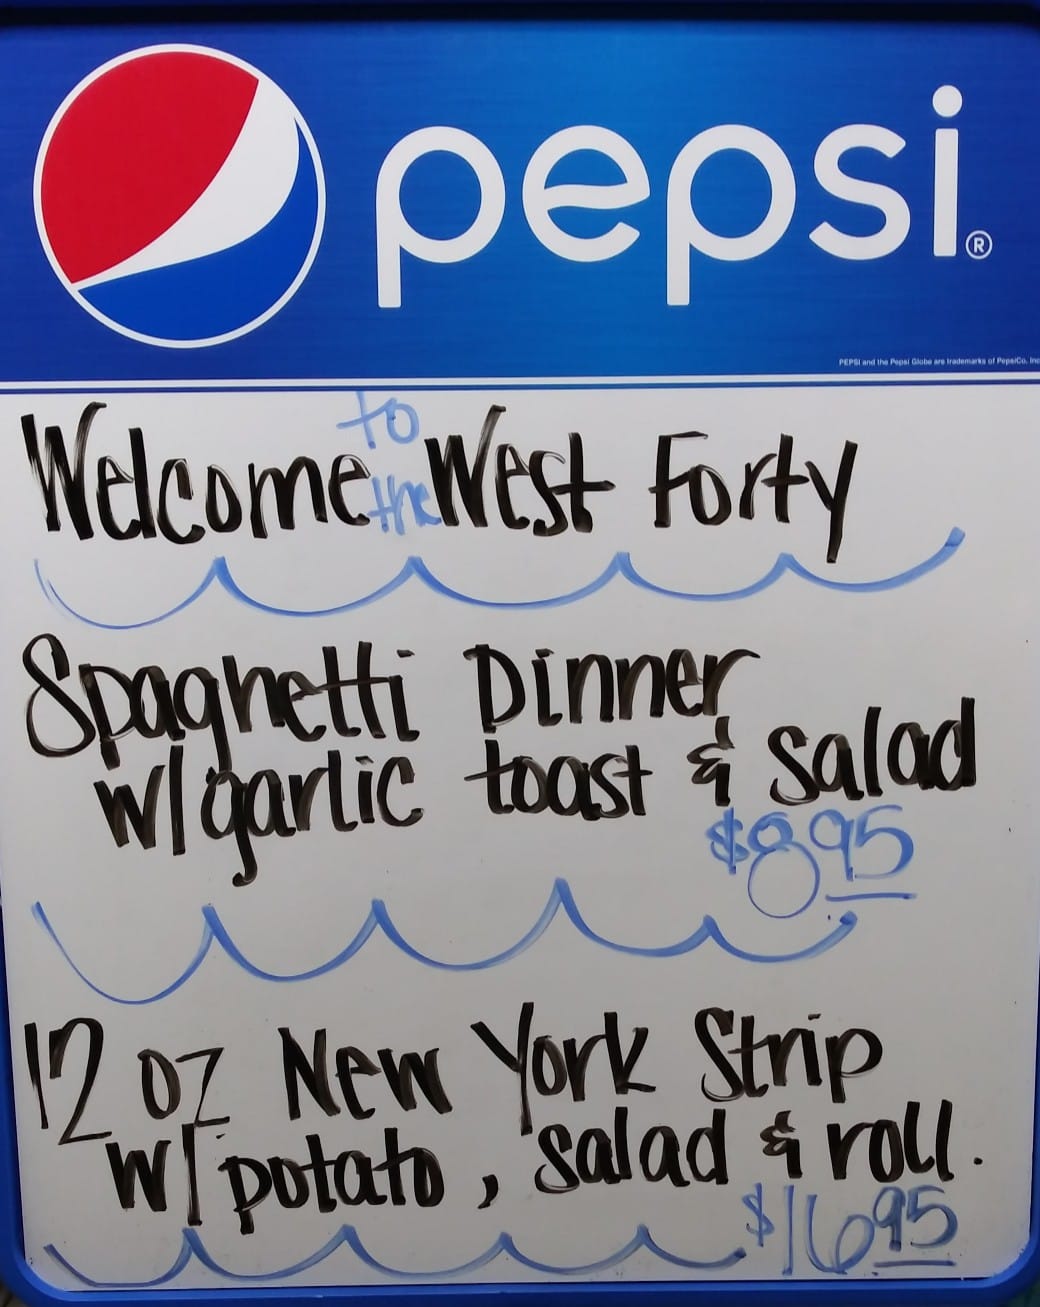 pepsi®
PEPSI and the Pepsi Globe are trademarks of PepsiCo, Inc
Welcome to the West Forty
Spaghetti Dinner
w/garlic toast & salad
$8.95
12 oz New York Strip
w/ potato, salad & roll.
$16.95